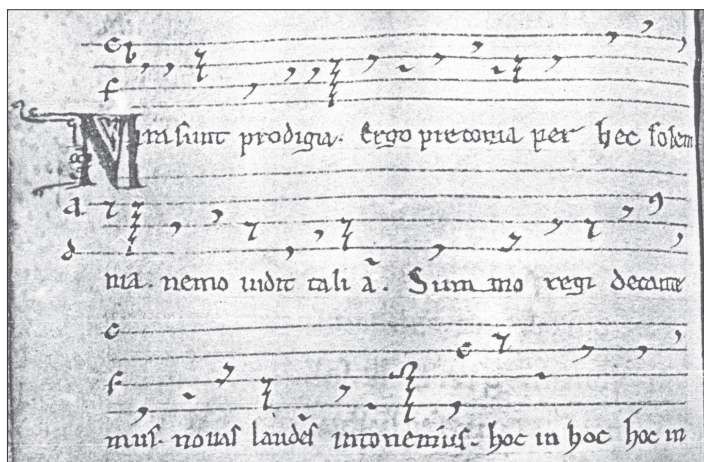 Mira sunt prodigia. Ergo pretoria per hec solem
nia. nemo uidit tali a. Sum mo regi decante
mus. nouas laudes intonemus. hoc in hoc hoc in